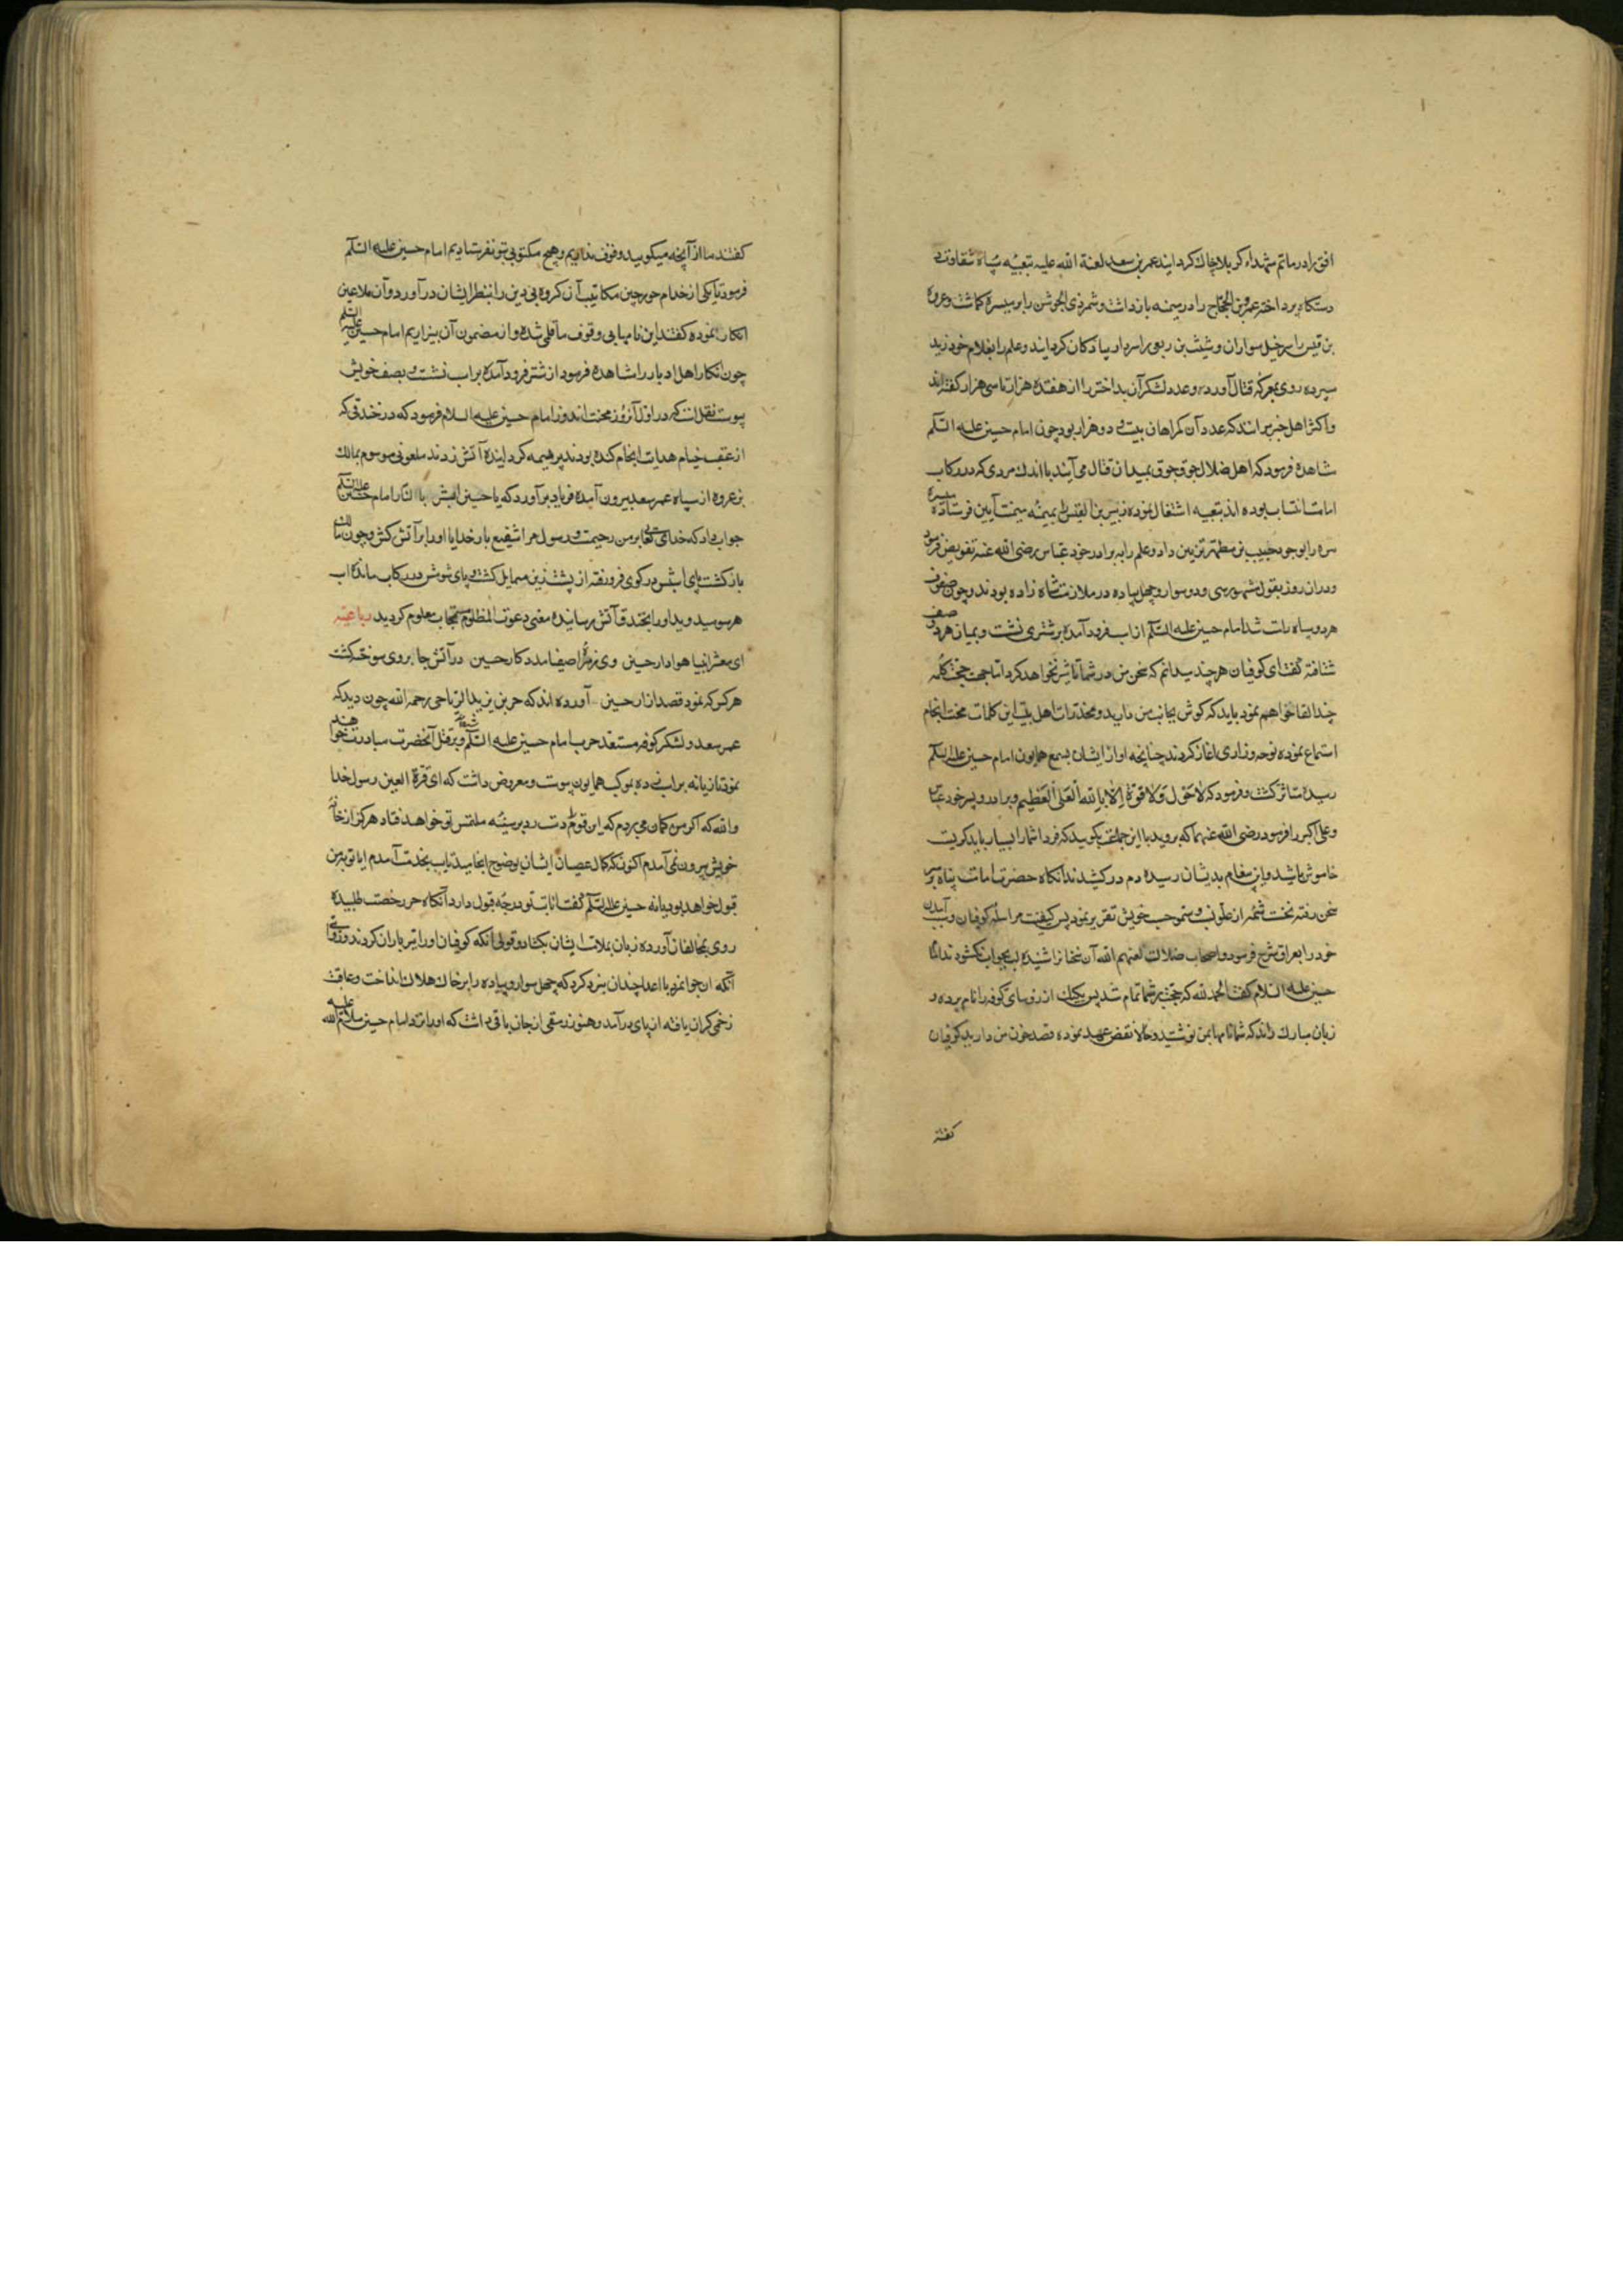 افق را در ماتم شهداء کربلا چاك کردانید عمر بن سعد لعنة الله علیه بتعبیه سپاه شقاوت
دستکاه پرداخته عمرو بن الحجاج را در میمنه بازداشت و شمر ذی الجوشن را بر میسره کماشت و عروه
بن قیس را سرخیل سواران و شبث بن ربعی را سردار پیادکان کردانید و علم را بغلام خود زید
سپرده روی بمعرکه قتال آورد و عدد لشکر آن بداختر را از هفتده هزار تا سی هزار کفته اند
و اکثر اهل خبر برانند که عدد آن کمراهان بیست و دو هزار بود چون امام حسین علیه السلم
مشاهده فرمود که اهل ضلال جوق جوق بمیدان قتال می آیند با اندك مردی که در رکاب
امامت انتساب بودند بتعبیه اشتغال نموده زهیر بن القیس را بمیمنه میمنت آیین فرستاده میسره
را بوجود حبیب بن مطهر تزیین داد و علم را به برادر خود عباس رضی الله عنه تفویض فرمود
و در ان روز بقول مشهور سی و دو سوار و چهل پیاده در ملازمت شاه زاده بودند و چون صفوف
هر دو سپاه راست شد امام حسین علیه السلم از اسب فرود آمده بر شتری نشست و بمیان هر دو صف
شتافته گفت ای کوفیان هر چند میدانم که سخن من در شما تاثیر نخواهد کرد اما جهت حجت کلمه
چند القا خواهم نمود باید که کوش بجانب من دارید و مخدرات اهل بیت این کلمات محنت انجام
استماع نموده نوحه و زاری اغاز کردند چنانچه اواز ایشان بسمع همایون امام حسین علیه السلم
رسیده متاثر کشت و فرمود که لا حول ولا قوة الا بالله العلی العظیم و برادر و پسر خود عباس
و علی اکبر را فرمود رضی الله عنهما که بروید با این جماعت بکویید که فردا شما را بسیار باید کریست
خاموش باشید و این پیغام بدیشان رسیده دم درکشیدند انکاه حضرت امامت پناه بر سر
سخن رفته نخست شمه از علو نسب و سمو حسب خویش تقریر نمود پس کیفیت مراسله کوفیان و سبب آمدن
خود را بعراق شرح فرمود و اصحاب ضلالت لعنهم الله آن سخنا نرا شنیده لب بجواب نکشودند امام
حسین علیه السلام کفت الحمد لله که حجت بر شما تمام شد پس یکیك از رؤسای کوفه را نام برده و
زبان مبارك راند که شما نامها بمن نوشتید و حالا نقض عهد نموده قصد خون من دارید کوفیان
کفتند
کفتند ما از آنچه میکویید وقوف نداریم و هیچ مکتوبی بتو نفرستادیم امام حسین علیه السلم
فرمود تا یکی از خدام خورجین مکاتیب آن کروه بی دین را بنظر ایشان در آورد و آن ملاعین
انکار نموده کفتند این نامها بی وقوف ما قلمی شده و از مضمون آن بیزاریم امام حسین علیه السلم
چون انکار اهل ادبار را مشاهده فرمود از شتر فرود آمده بر اسب نشست و بصف خویش
پیوست نقلست که در اول آن روز محنت اندوز امام حسین علیه السلام فرمود که در خندقی که
از عقب خیام هدایت انجام کنده بودند پر هیمه کردانیده آتش زدند ملعونی موسوم بمالك
بن عروه از سپاه عمر سعد بیرون آمده فریاد برآورد که یا حسین ابشر بالنار امام حسین علیه السلم
جواب داد که خدای تعالی بر من رحیمست و رسول مرا شفیع بار خدایا او را بر آتش کش و چون مالك
بازکشت پای اسبش در کوی فرو رفته از پشت زین متمایل کشت و پای شومش در رکاب مانده اسب
هر سو میدوید او را بخندق آتش رسانیده معنی دعوت المظلوم مستجاب معلوم کردید رباعیه
ای معشر انبیا هوادار حسین وی زمره اصفیا مددکار حسین در آتش جا بروی سوختست
هر کس که نمود قصد ازار حسین آورده اند که حر بن یزید الریاحی رحمه الله چون دید که
عمر سعد و لشکر کوفه مستعد حرب امام حسین علیه السلم شده و بر قتل آنحضرت مبادرت خواهند
نمود تازیانه بر اسب زده بموکب همایون پیوست و معروض داشت که ای قرة العین رسول خدا
والله که اکر من کمان می بردم که این قوم دست رد بر سینه ملتمس تو خواهند نهاد هرکز از خانه
خویش بیرون نمی آمدم اکنون که کمال عصیان ایشان بوضوح انجامید تایب بخدمت آمدم ایا توبه من
قبول خواهد بود یا نه حسین علیه السلم کفت انابت تو درجه قبول دارد آنکاه حر رخصت طلبیده
روی بمخالفان آورده زبان بملامت ایشان بکشاد و قولی انکه کوفیان او را تیرباران کردند و روایتی
آنکه ان جوانمرد با اعدا چندان نبرد کرد که چهل سوار و پیاده را بر خاك هلاك انداخت و عاقبت
زخمی کران یافته از پای درآمد و هنوز رمقی از جان باقی داشت که او را نزد امام حسین سلام الله علیه